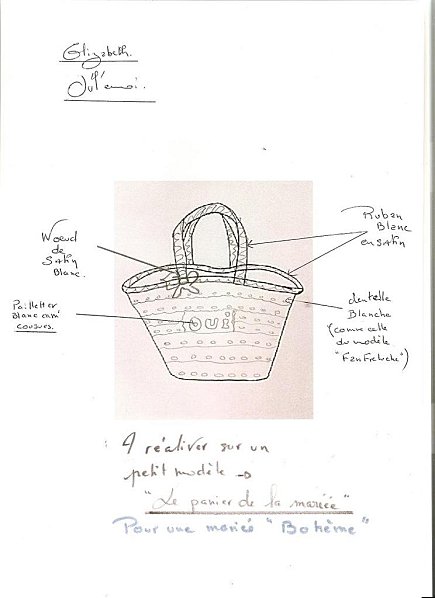 Elizabeth.
Noeud
de
Satin
Blanc.
Ruban
Blanc
en Satin
Pailletter
Blanc
cousues.
OUI
dentelle
Blanche
(comme celle
du modèle
"FanFreluche")
: A réaliser sur un
petit modèle →
"Le panier de la mariée"
Pour une mariée "Bohème"